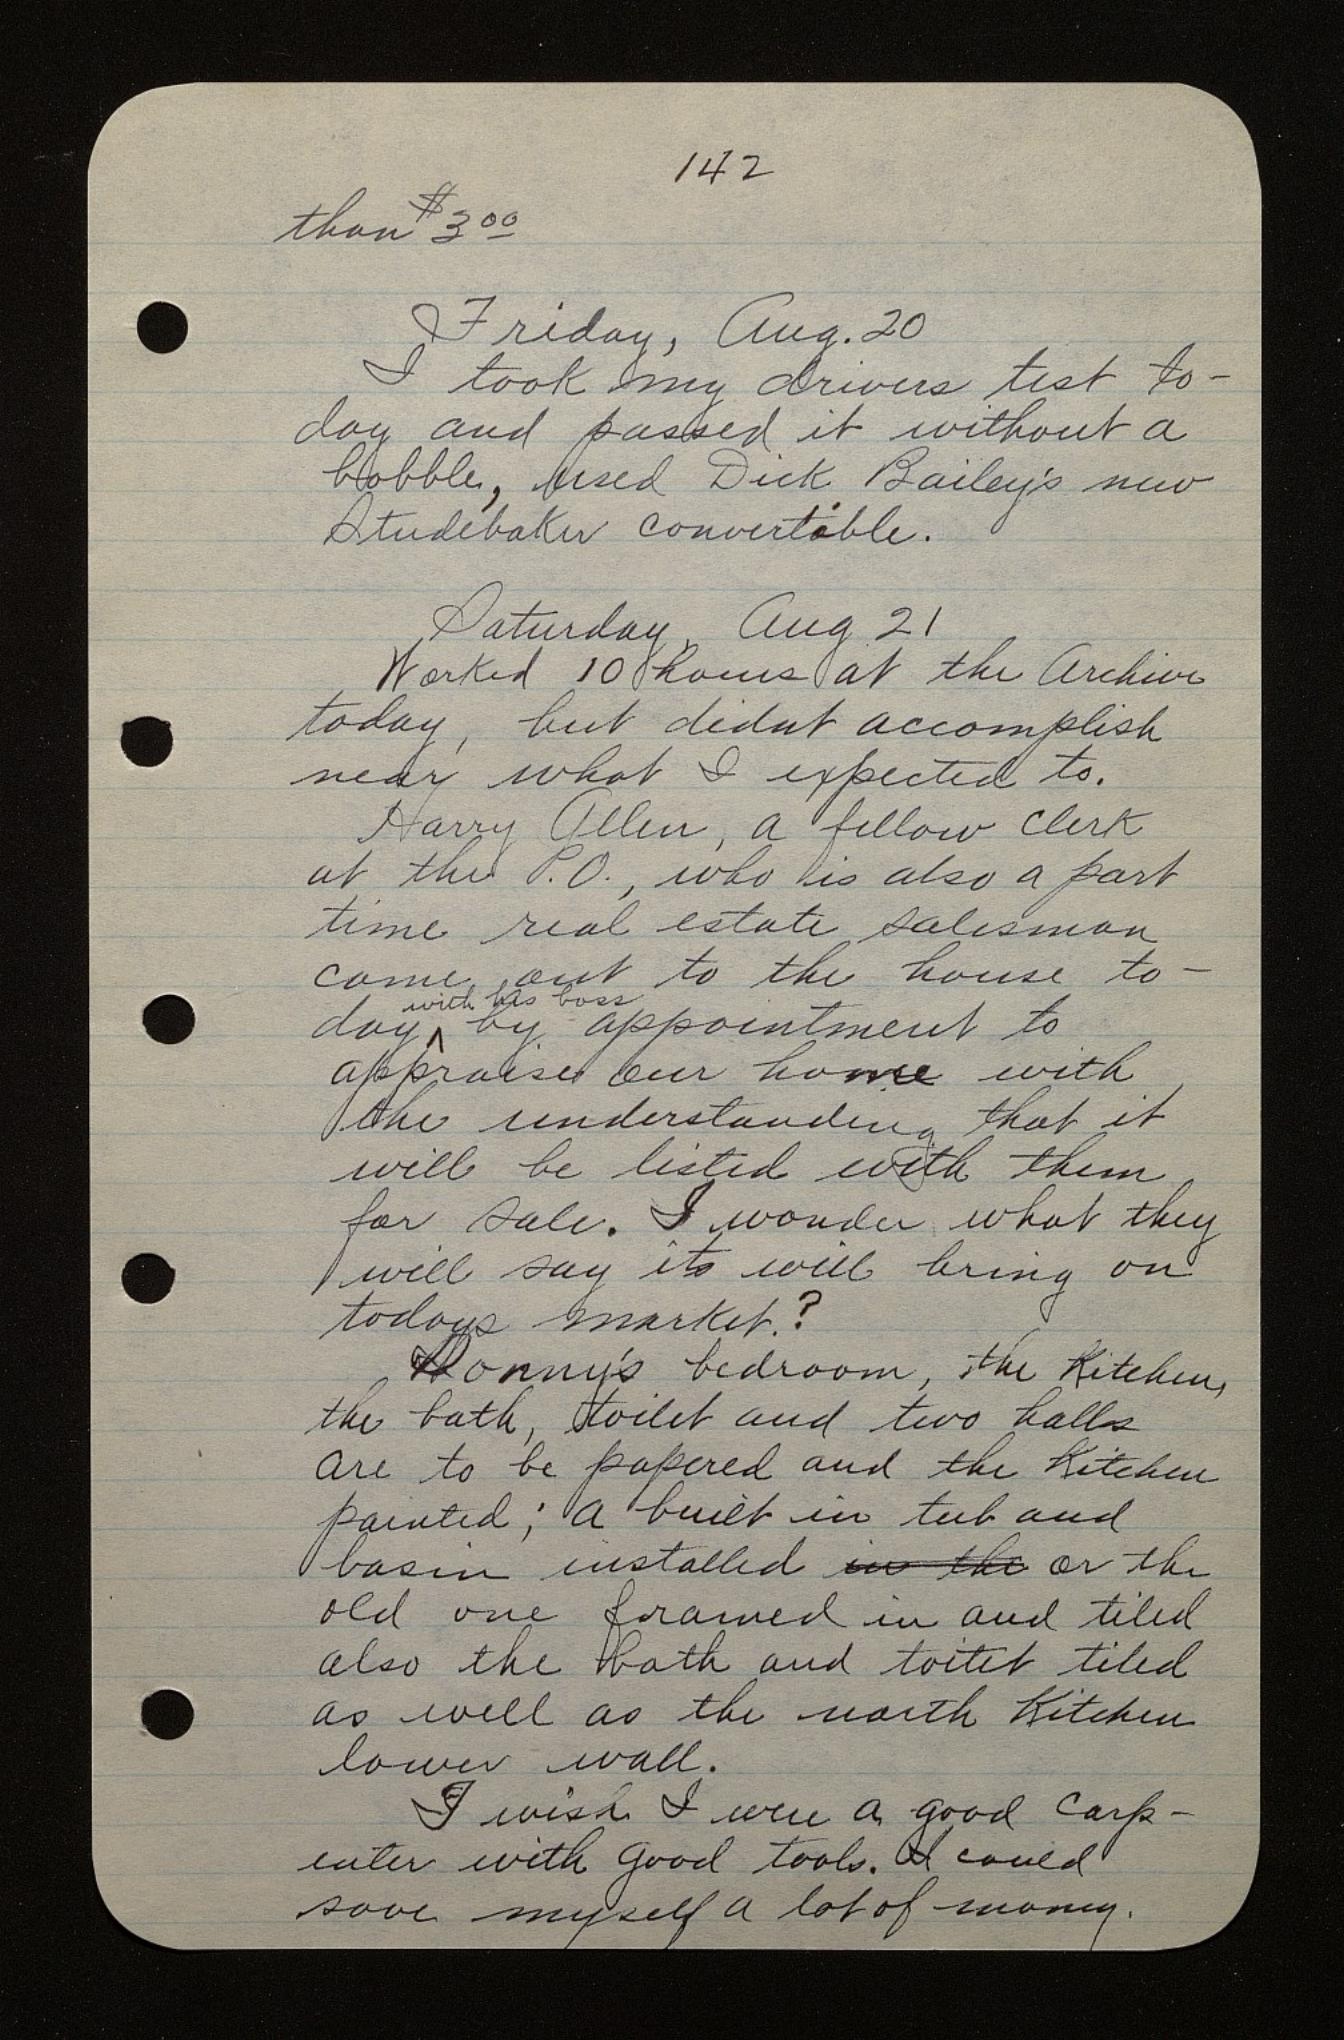 142
than $3.00
Friday, Aug. 20
I took my drivers test to-
day and passed it without a
bobble, used Dick Bailey's new
Studebaker convertible.
Saturday, Aug 21
Worked 10 hours at the Archive
today, but didnt accomplish
near what I expected to.
Harry Allen, a fellow clerk
at the P.O., who is also a part
time real estate salesman
came out to the house to-
with his boss
day ^ by appointment to
appraise our home with
the understanding that it
will be listed with them
for sale. I wonder what they
will say its will bring on
todays market.?
Donny's bedroom, the Kitchen,
the bath, toilet and two halls
are to be papered and the Kitchen
painted; a built in tub and
basin installed in the or the
old one framed in and tiled
also the bath and toilet tiled
as well as the north Kitchen
lower wall.
I wish I were a good carp-
enter with good tools. I could
save myself a lot of money.